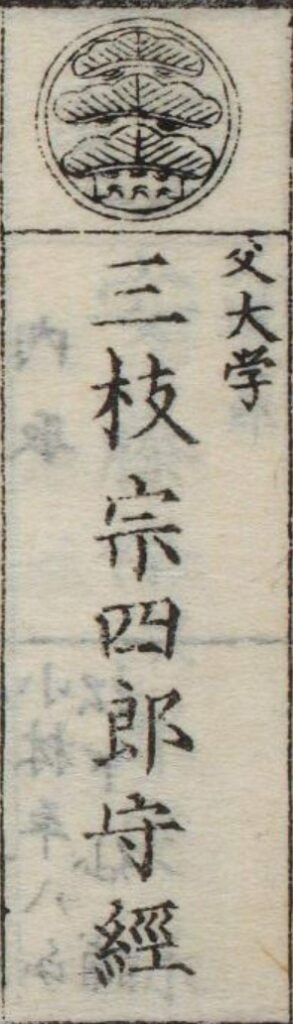 父大学
三枝宗四郎守經